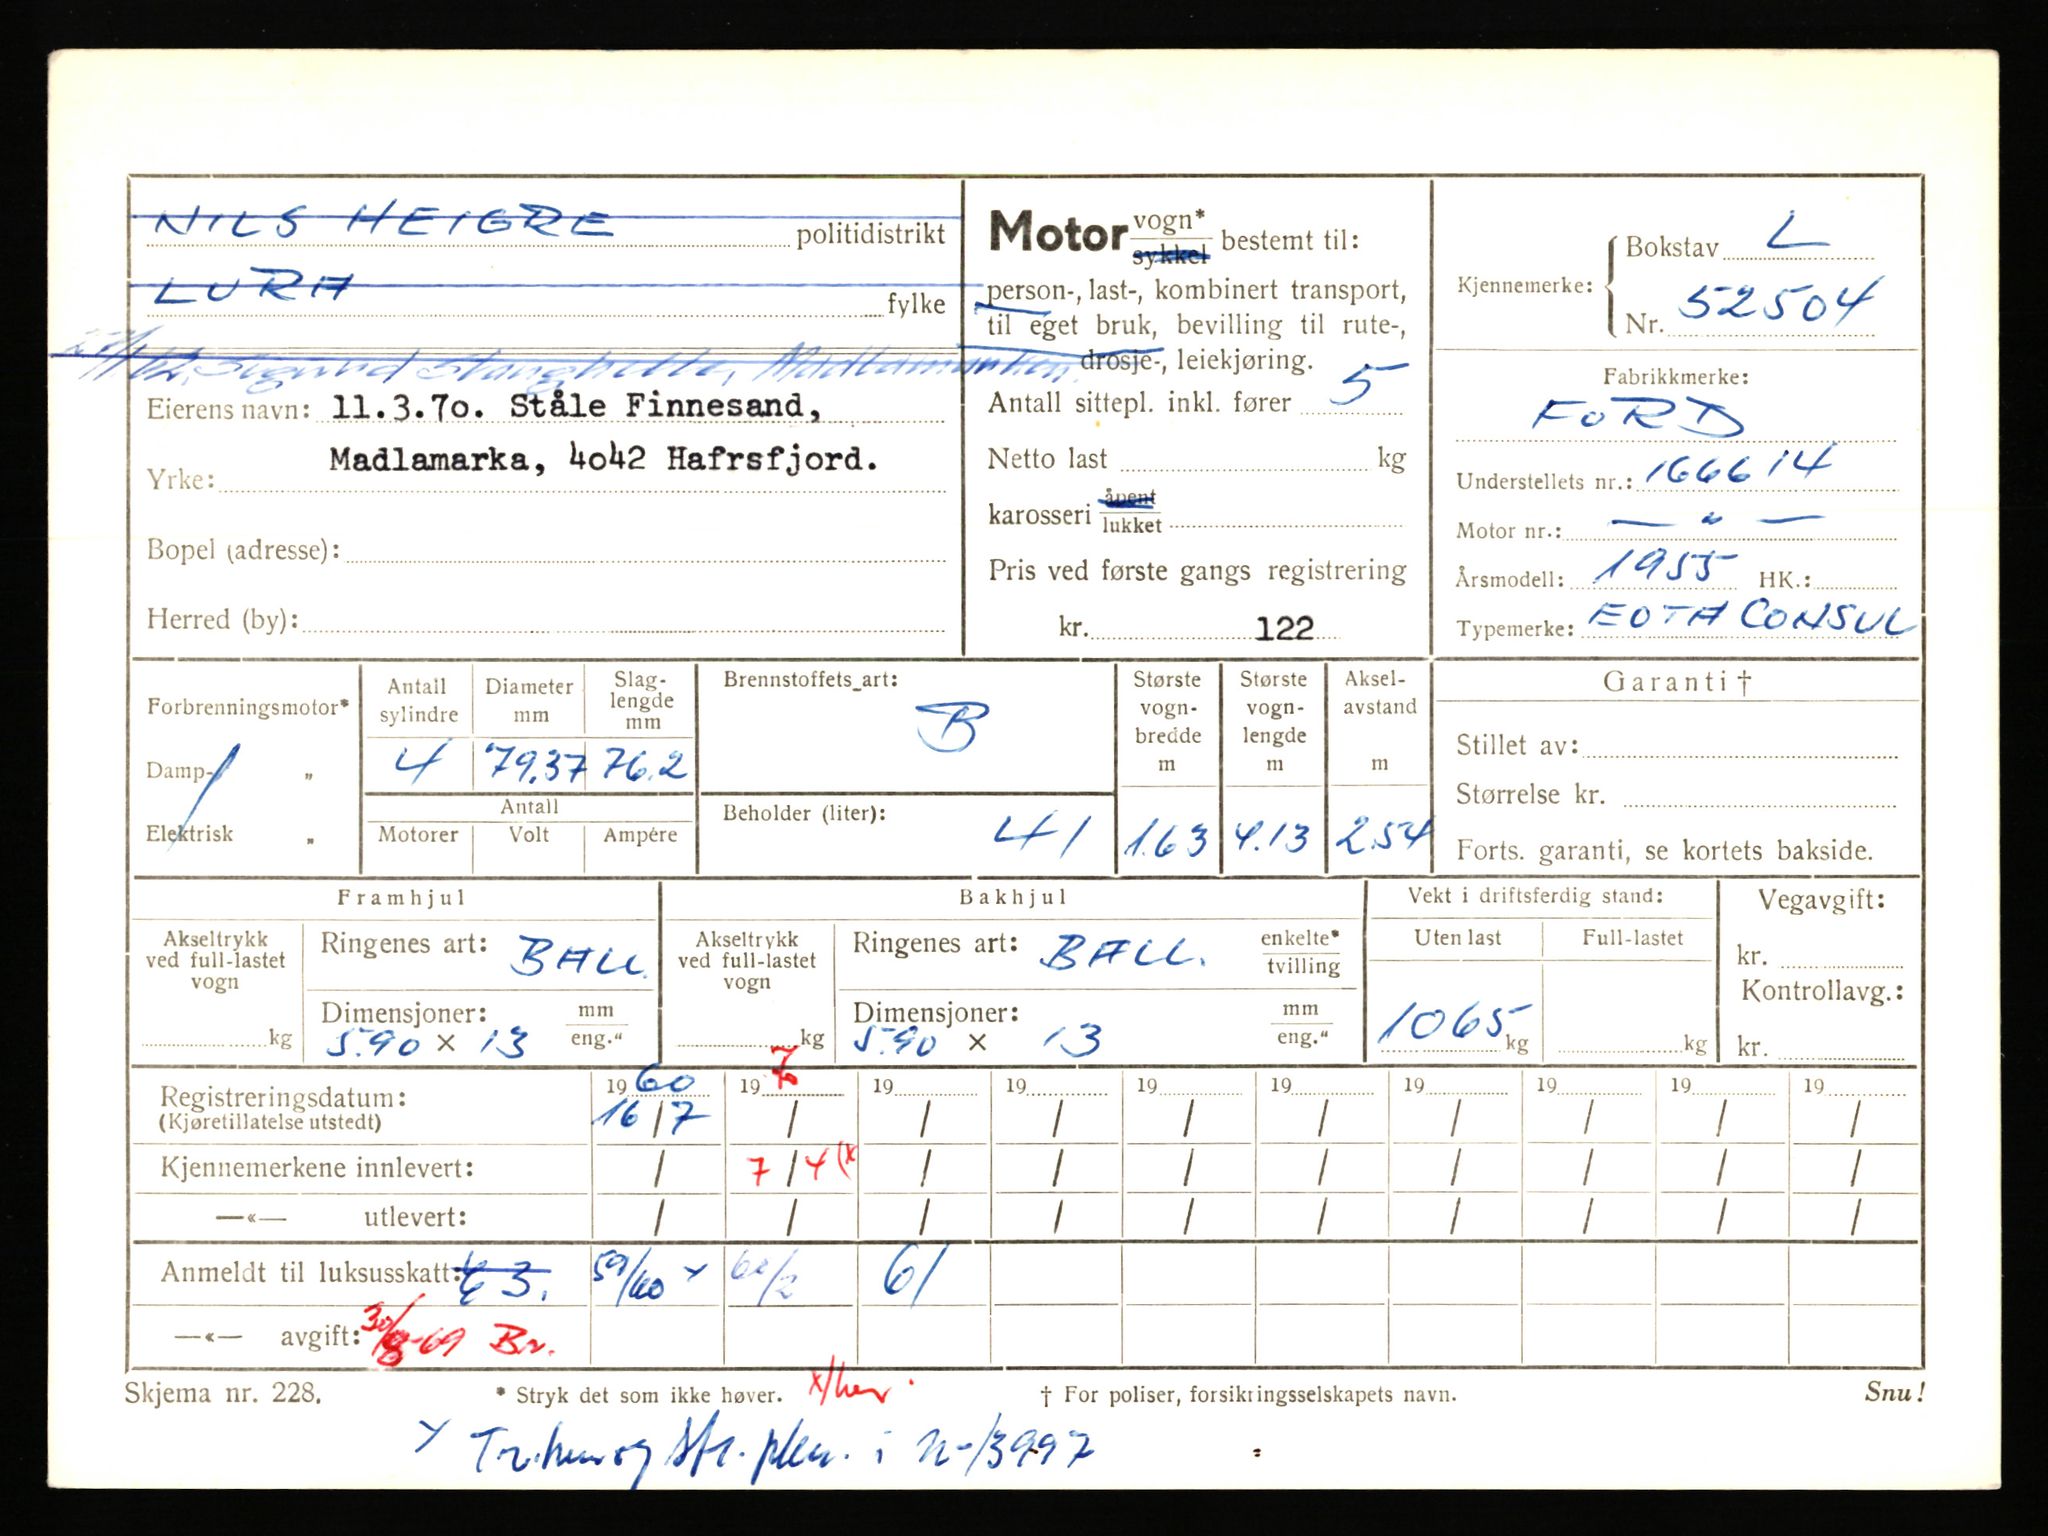 NILS HEIGRE politidistrikt
LURA fylke
Sigurd Stanghelle, Madlamarken.
Eierens navn: 11.3.7o. Ståle Finnesand,
Madlamarka, 4o42 Hafrsfjord.
Yrke:
Bopel (adresse):
Herred (by):
Motor vogn* sykkel bestemt til:
person-, last-, kombinert transport,
til eget bruk, bevilling til rute-,
drosje-, leiekjøring.
Antall sittepl. inkl. fører 5
Netto last kg
karosseri åpent lukket
Pris ved første gangs registrering
kr. 122
Kjennemerke: { Bokstav L
Nr. 52504
Fabrikkmerke:
FORD
Understellets nr.: 166614
Motor nr.: — " —
Årsmodell: 1955 HK.:
Typemerke: EOTA CONSUL
Forbrenningsmotor*
Damp- „
Elektrisk „
Antall sylindre Diameter mm Slag-lengde mm
4 79.37 76.2
Antall
Motorer Volt Ampére
Brennstoffets art:
B
Beholder (liter):
41
Største vogn-bredde m Største vogn-lengde m Aksel-avstand m
1.63 4.13 2.54
Garanti †
Stillet av:
Størrelse kr.
Forts. garanti, se kortets bakside.
Framhjul
Akseltrykk ved full-lastet vogn
kg
Ringenes art: BALL.
Dimensjoner: mm eng."
5.90 x 13
Bakhjul
Akseltrykk ved full-lastet vogn
kg
Ringenes art: BALL. enkelte* tvilling
Dimensjoner: mm eng."
5.90 x 13
Vekt i driftsferdig stand:
Uten last Full-lastet
1065 kg kg
Vegavgift:
kr.
Kontrollavg.:
kr.
19 60 19 7 19 19 19 19 19 19 19 19
Registreringsdatum: 16/7 / / / / / / / / /
(Kjøretillatelse utstedt)
Kjennemerkene innlevert: / 7/4 (x / / / / / / / /
—«— utlevert: / / / / / / / / / /
Anmeldt til luksusskatt: 63. 59/60 x 60/2 61
—«— avgift: 30/8-69 Br.
Skjema nr. 228. * Stryk det som ikke høver. x/her. † For poliser, forsikringsselskapets navn. Snu!
i n-13997